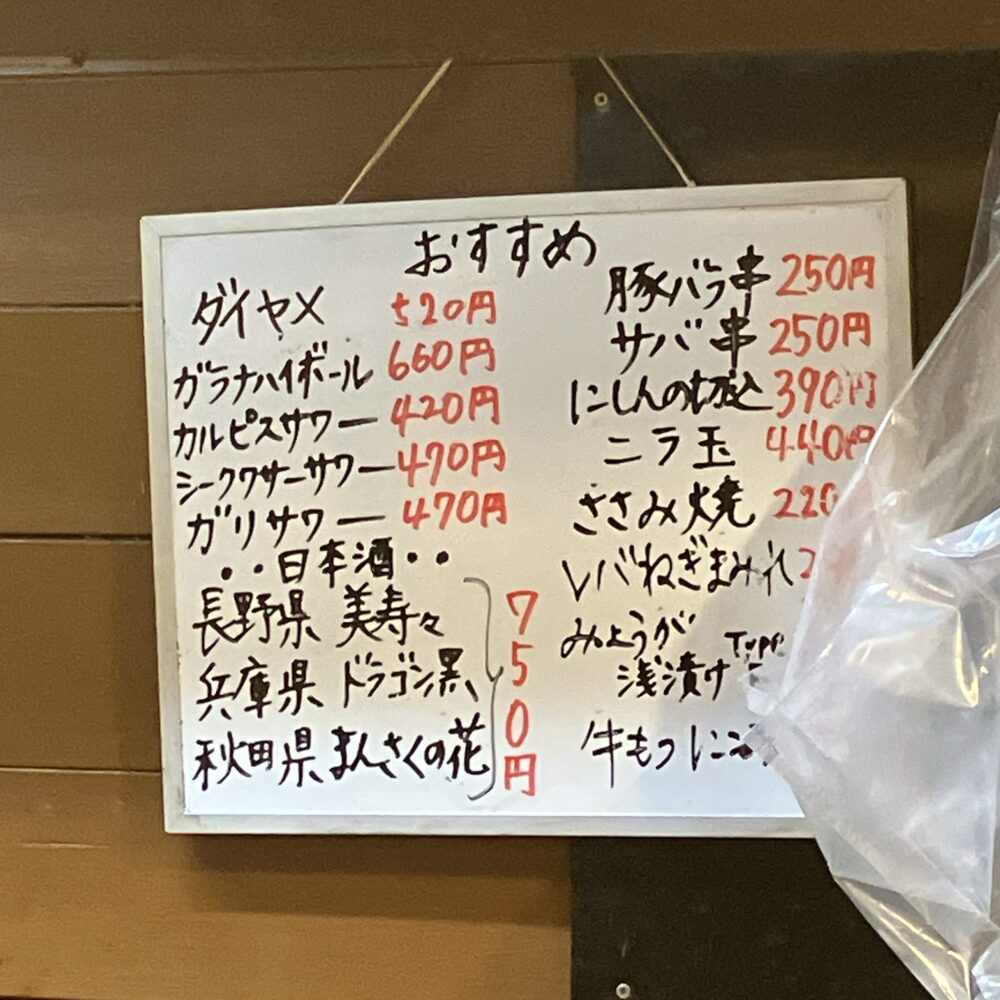 おすすめ
ダイヤメ 520円
ガラナハイボール 660円
カルピスサワー 420円
シークワサーサワー 470円
ガリサワー 470円
・・日本酒・・
長野県 美寿々
兵庫県 ドラゴン黒
秋田県 まんさくの花
750円
豚バラ串 250円
サバ串 250円
にしんの切込 390円
ニラ玉 440円
ささみ焼 220
レバねぎまみれ 2
みょうが
浅漬け
牛もつにこ